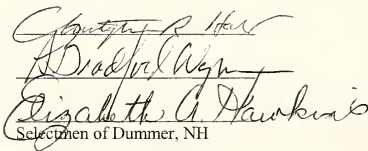 R
Bradford Wyman
Elizabeth A. Hawkins
Selectmen of Dummer, NH